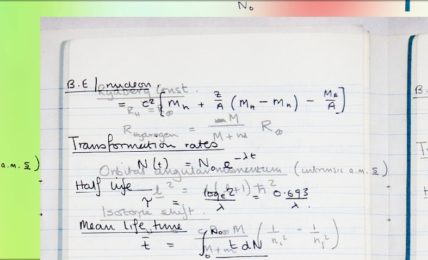 N₀
B.E / nucleon
Rydberg const.
= c² [ Mₙ + Z/A (M_H − Mₙ) − M_A/A ]
R_hydrogen = M / M + m R∞
Transformation rates
N(t) = N₀ e^−λt
a.m. s)
Orbital angular momentum (intrinsic a.m. s)
Half life
τ = logₑ2 / λ = 0.693 / λ
l² = l(l+1) ħ²
Isotope shift.
Mean life time
t̄ = ∫₀^N₀ t dN
(1/n₁² − 1/n₂²)